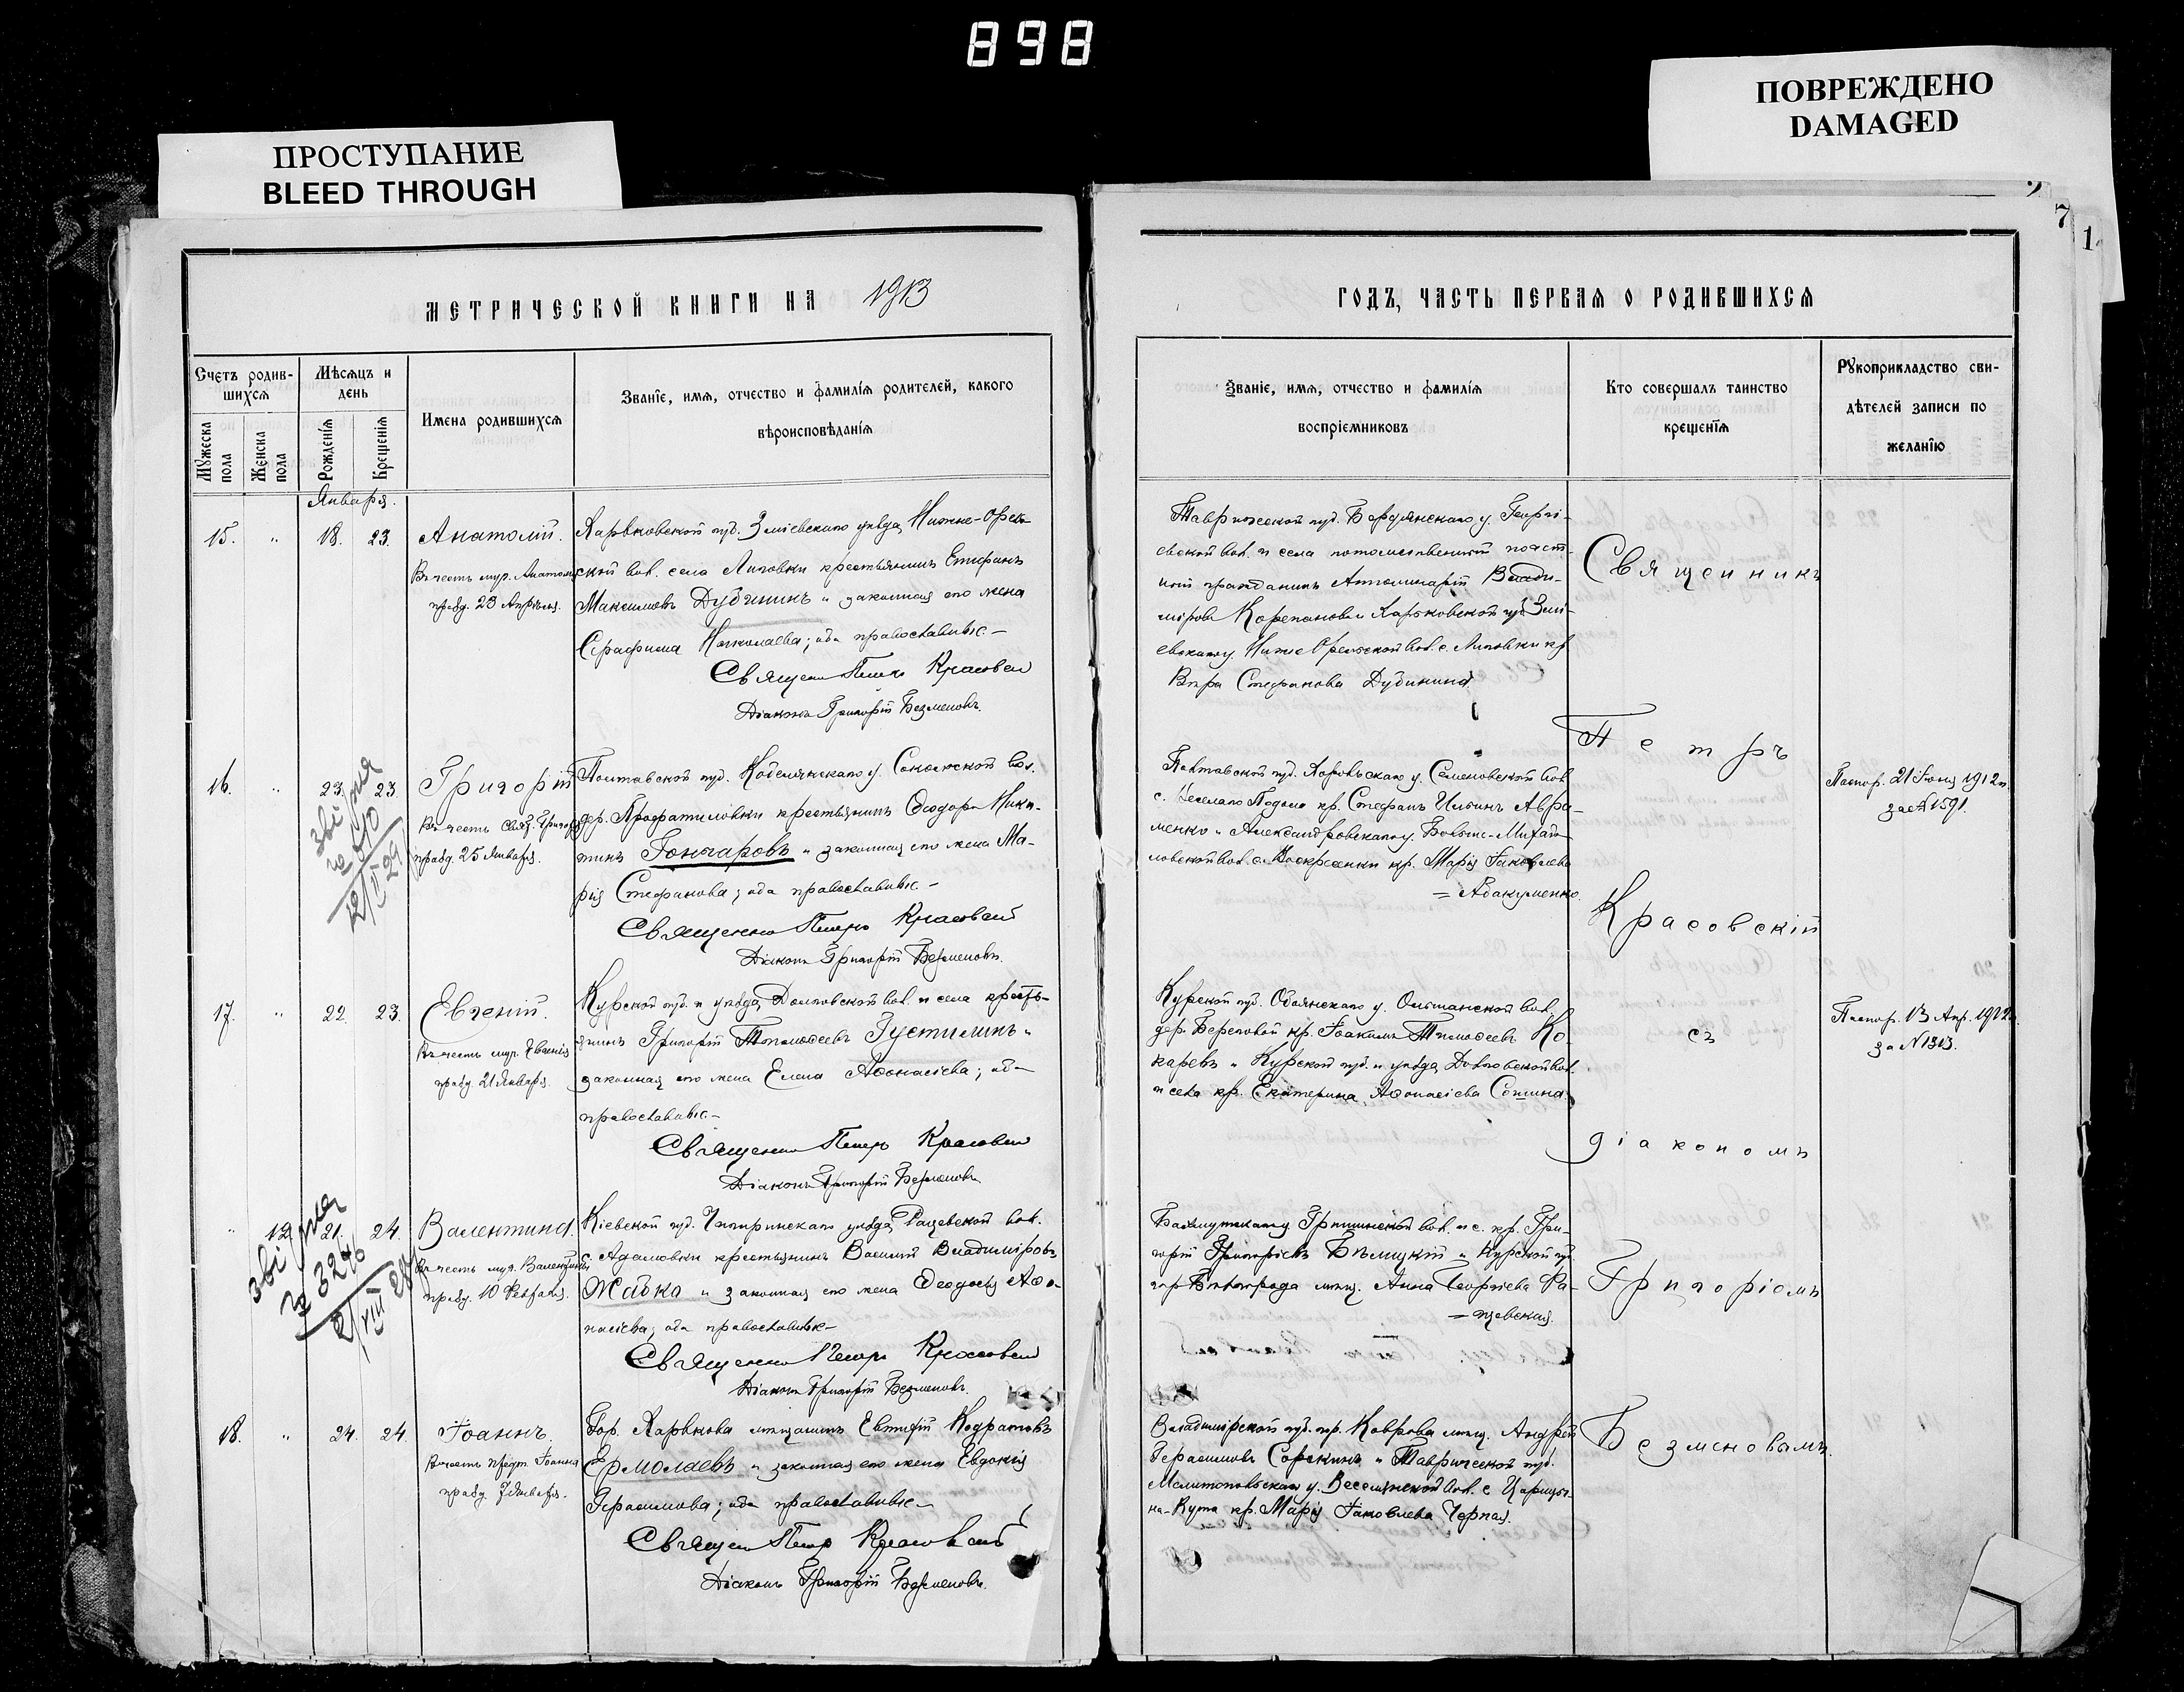 898
ПРОСТУПАНИЕ
BLEED THROUGH
ПОВРЕЖДЕНО
DAMAGED
7
1
МЕТРИЧЕСКОЙ КНИГИ НА 1913
Счетъ родив-
шихся
Мѣсяцъ и
день
Имена родившихся
Званіе, имя, отчество и фамилія родителей, какого
вѣроисповѣданія
Мужеска
пола
Женска
пола
Рожденія
Крещенія
Января.
15. " 18. 23. Анатолій.
Въ честь муч. Анатолія
празд. 23 Апрѣля.
Харьковской губ. Зміевскаго уѣзда, Нижне-Орель-
ской вол. села Липовки крестьянинъ Епифанъ
Максимовъ Дубининъ и законная его жена
Серафима Николаева; оба православные.
Священникъ Петръ Красовскій
Діаконъ Григорій Безменовъ.
16. " 23. 23. Григорій
Въ честь Свят. Григорія
празд. 25 Января.
Полтавской губ. Кобелякскаго у. Сокольской вол.
крестьянинъ Ѳеодоръ Ники-
тинъ Гончаровъ и законная его жена Ма-
рія Стефанова; оба православные.
Священникъ Петръ Красовскій
Діаконъ Григорій Безменовъ.
12/V 29
17. " 22. 23. Евгеній.
Въ честь муч. Евгенія
празд. 21 Января.
Курской губ. и уѣзда, Долговской вол. и села кресть-
янинъ Григорій Тимоѳеевъ Густилинъ и
законная его жена Елена Аѳанасіева; оба
православные.
Священникъ Петръ Красовскій
Діаконъ Григорій Безменовъ.
" 12. 21. 24. Валентина.
Въ честь муч. Валентины
празд. 10 Февраля.
3246
Кіевской губ. Чигиринскаго уѣзда, Рацевской вол.
с. Адамовки крестьянинъ Василій Владиміровъ
Жабка и законная его жена Ѳеодосія Аѳа-
насіева; оба православные.
Священникъ Петръ Красовскій
Діаконъ Григорій Безменовъ.
18. " 24. 24. Іоаннъ.
Въ честь предт. Іоанна
празд. 7 Января.
Гор. Харькова мѣщанинъ Евтифій Кодратовъ
Ермолаевъ и законная его жена Евдокія
Герасимова; оба православные.
Священникъ Петръ Красовскій
Діаконъ Григорій Безменовъ.
ГОДЪ, ЧАСТЬ ПЕРВАЯ О РОДИВШИХСЯ
Званіе, имя, отчество и фамилія
воспріемниковъ
Кто совершалъ таинство
крещенія
Рукоприкладство сви-
дѣтелей записи по
желанію
Таврической губ. Бердянскаго у. Георгі-
евской вол. и села потомственный почет-
ный гражданинъ Влади
Харьковской губ. Змі-
евскаго у. Нижне Орельской вол. с. Липовки кр.
Вѣра Стефанова Дубинина.
Полтавской губ. Хорольскаго у. Семеновской вол.
с. Веселаго Подола кр. Стефанъ Ильинъ Авра-
менко и Александровскаго у. Больше-Михай-
ловской вол. с. Воскресенки кр. Марія Іаковлева
= Абакуменко.
Паспор. 21 Іюня 1912 г.
за № 1591.
Курской губ. Обоянскаго у. Ольшанской вол.
дер. Береговой кр. Іоакимъ Тимоѳеевъ Ко-
каревъ и Курской губ. и уѣзда, Долговской вол.
и села кр. Екатерина Аѳанасіева Сошина.
Паспор. 13 Апр. 1912 г.
за № 1313.
Бахмутскаго у. Гришинской вол. и с. кр. Гри-
горій Григоріевъ Бѣлицкій и Курской губ.
гор. Бѣлгорода мѣщ. Анна Георгіева Ра-
= цевская.
Владимірской губ. гор. Коврова мѣщ. Андрей
Герасимовъ Сорокинъ и Таврической губ.
Мелитопольскаго у. Веселянской вол. с. Царицы-
на-Кута кр. Марія Іаковлева Черная.
Священникъ
Петръ
Красовскій
съ
діакономъ
Григоріемъ
Безменовымъ.